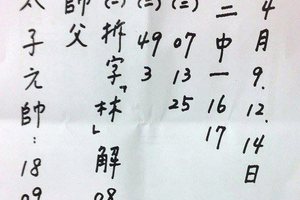 4月9.12.14日
二中一 16 17
(三) 07 13 25
(二) 49 3
(一) 拆字「林」解 08
師父
太子元帥：18 09